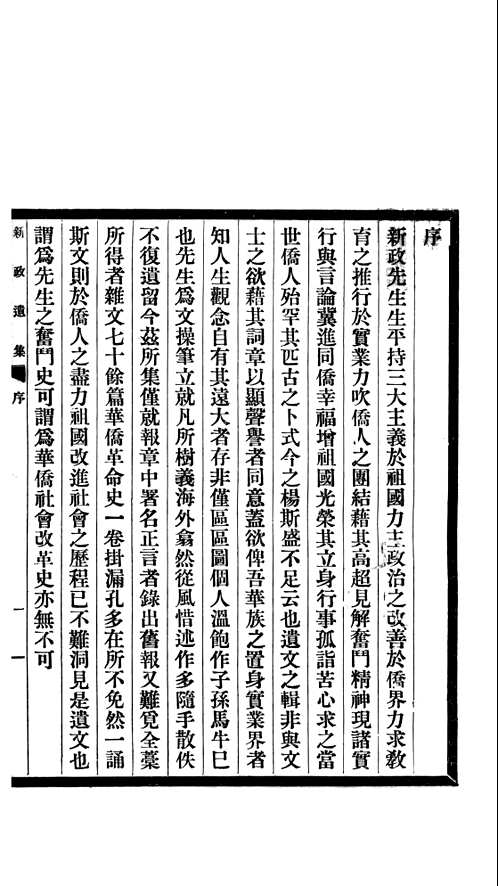 序
新政先生生平持三大主義於祖國力主政治之改善於僑界力求教
育之推行於實業力吹僑人之團結藉其高超見解奮鬥精神現諸實
行與言論冀進同僑幸福增祖國光榮其立身行事孤詣苦心求之當
世僑人殆罕其匹古之卜式今之楊斯盛不足云也遺文之輯非與文
士之欲藉其詞章以顯聲譽者同意蓋欲俾吾華族之置身實業界者
知人生觀念自有其遠大者存非僅區區圖個人溫飽作子孫馬牛已
也先生爲文操筆立就凡所樹義海外翕然從風惜述作多隨手散佚
不復遺留今茲所集僅就報章中署名正言者錄出舊報又難覓全藁
所得者雜文七十餘篇華僑革命史一卷掛漏孔多在所不免然一誦
斯文則於僑人之盡力祖國改進社會之歷程已不難洞見是遺文也
謂爲先生之奮鬥史可謂爲華僑社會改革史亦無不可
新政遺集 序 一